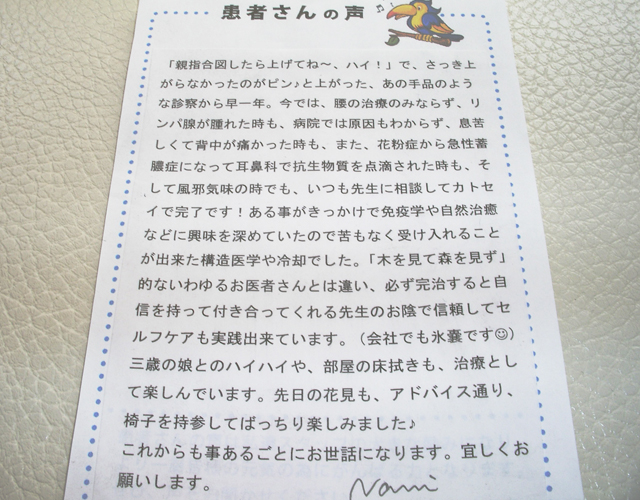 患者さんの声
「親指合図したら上げてね〜、ハイ！」で、さっき上
がらなかったのがピン♪と上がった、あの手品のよう
な診察から早一年。今では、腰の治療のみならず、リ
ンパ腺が腫れた時も、病院では原因もわからず、息苦
しくて背中が痛かった時も、また、花粉症から急性蓄
膿症になって耳鼻科で抗生物質を点滴された時も、そ
して風邪気味の時でも、いつも先生に相談してカトセ
イで完了です！ある事がきっかけで免疫学や自然治癒
などに興味を深めていたので苦もなく受け入れること
が出来た構造医学や冷却でした。「木を見て森を見ず」
的ないわゆるお医者さんとは違い、必ず完治すると自
信を持って付き合ってくれる先生のお陰で信頼してセ
ルフケアも実践出来ています。（会社でも氷嚢です☺）
三歳の娘とのハイハイや、部屋の床拭きも、治療とし
て楽しんでいます。先日の花見も、アドバイス通り、
椅子を持参してばっちり楽しみました♪
これからも事あるごとにお世話になります。宜しくお
願いします。
Nami